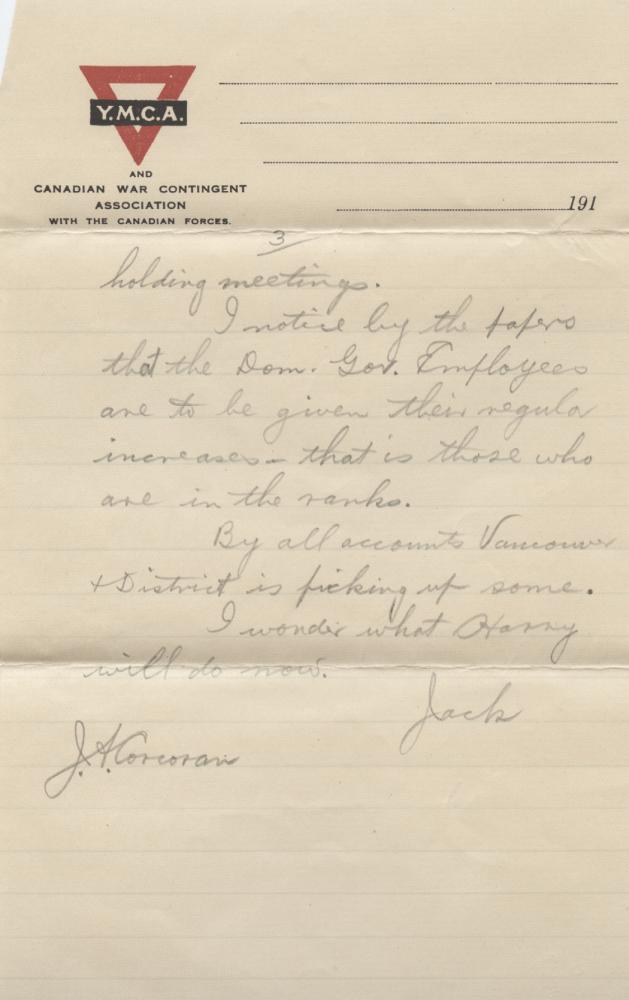 Y.M.C.A.
AND
CANADIAN WAR CONTINGENT
ASSOCIATION
WITH THE CANADIAN FORCES.
191
3
holding meetings.
I notice by the papers
that the Dom. Gov. Employees
are to be given their regular
increases - that is those who
are in the ranks.
By all accounts Vancouver
+ District is picking up some.
I wonder what Harry
will do now.
Jack
J.A. Corcoran